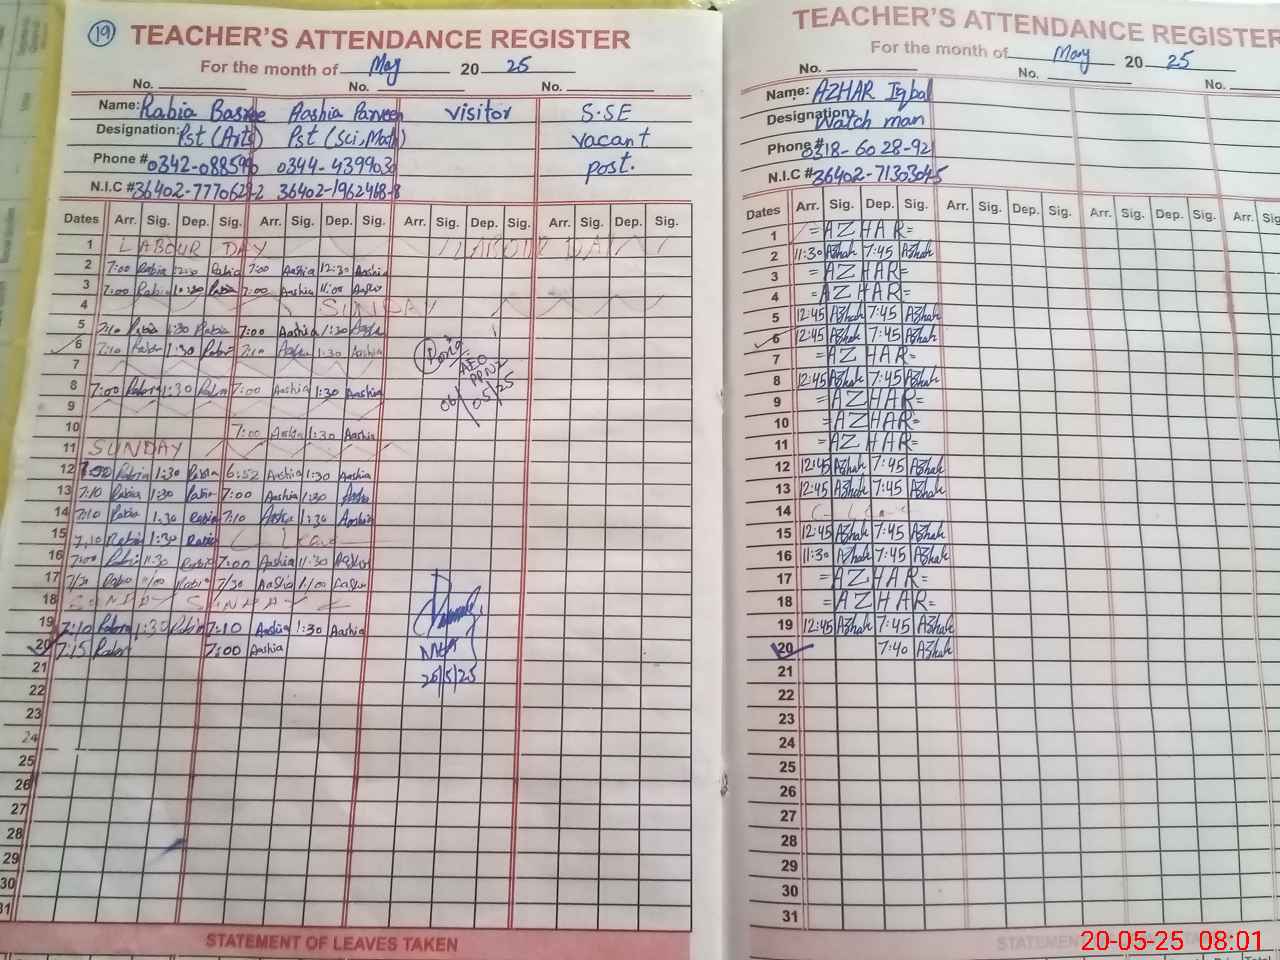 19
TEACHER'S ATTENDANCE REGISTER
For the month of May 20 25
No. No. No.
Name: Rabia Basree Aashia Parveen visitor S.SE
Designation: Pst (Arts) Pst (Sci, Math) vacant
Phone # 0342-088590 0344-439903 post.
N.I.C # 36402-7770629-2 36402-1962468-8
Dates Arr. Sig. Dep. Sig. Arr. Sig. Dep. Sig. Arr. Sig. Dep. Sig. Arr. Sig. Dep. Sig.
1 LABOUR DAY LABOUR DAY
2 7:00 Rabia 12:30 Rabia 7:00 Aashia 12:30 Aashia
3 7:00 Rabia Rabia 7:00 Aashia 11:00
4 SUNDAY
5 7:10 Rabia 1:30 Rabia 7:00 Aashia 1:30
6 7:10 1:30 7:10 1:30 Aashia
7
8 7:00 1:30 7:00 Aashia 1:30 Aashia
AEO
06/05/25
9
10 7:00 Aashia 1:30 Aashia
11 SUNDAY
12 1:30 Rabia 6:52 Aashia 1:30 Aashia
13 7:10 Rabia 1:30 7:00 Aashia 1:30
14 7:10 Rabia 1:30 Rabia 7:10 1:30 Aashia
15 7:10 Rabia 1:30 Rabia C- Leave
16 7:00 11:30 Rabia 7:00 Aashia 11:30
17 7/30 11/00 7/30 Aashia
18 SUNDAY SUNDAY
19 7:10 1:30 7:10 Aashia 1:30 Aashia
20 7:15 7:00 Aashia
21
22
23
24
25
26
27
28
29
30
31
STATEMENT OF LEAVES TAKEN
TEACHER'S ATTENDANCE REGISTER
For the month of May 20 25
No. No. No.
Name: AZHAR Iqbal
Designation: Watch man
Phone # 0318-60 28-92
N.I.C # 36402-7130304-5
Dates Arr. Sig. Dep. Sig. Arr. Sig. Dep. Sig. Arr. Sig. Dep. Sig. Arr.
1 =AZHAR=
2 11:30 Azhar 7:45 Azhar
3 =AZHAR=
4 =AZHAR=
5 12:45 Azhar 7:45 Azhar
6 12:45 Azhar 7:45 Azhar
7 =AZHAR=
8 12:45 Azhar 7:45 Azhar
9 =AZHAR=
10 =AZHAR=
11 =AZHAR=
12 12:45 Azhar 7:45 Azhar
13 12:45 Azhar 7:45 Azhar
14 C- Leave
15 12:45 Azhar 7:45 Azhar
16 11:30 Azhar 7:45 Azhar
17 =AZHAR=
18 =AZHAR=
19 12:45 Azhar 7:45 Azhar
20 7:40 Azhar
21
22
23
24
25
26
27
28
29
30
31
20-05-25 08:01